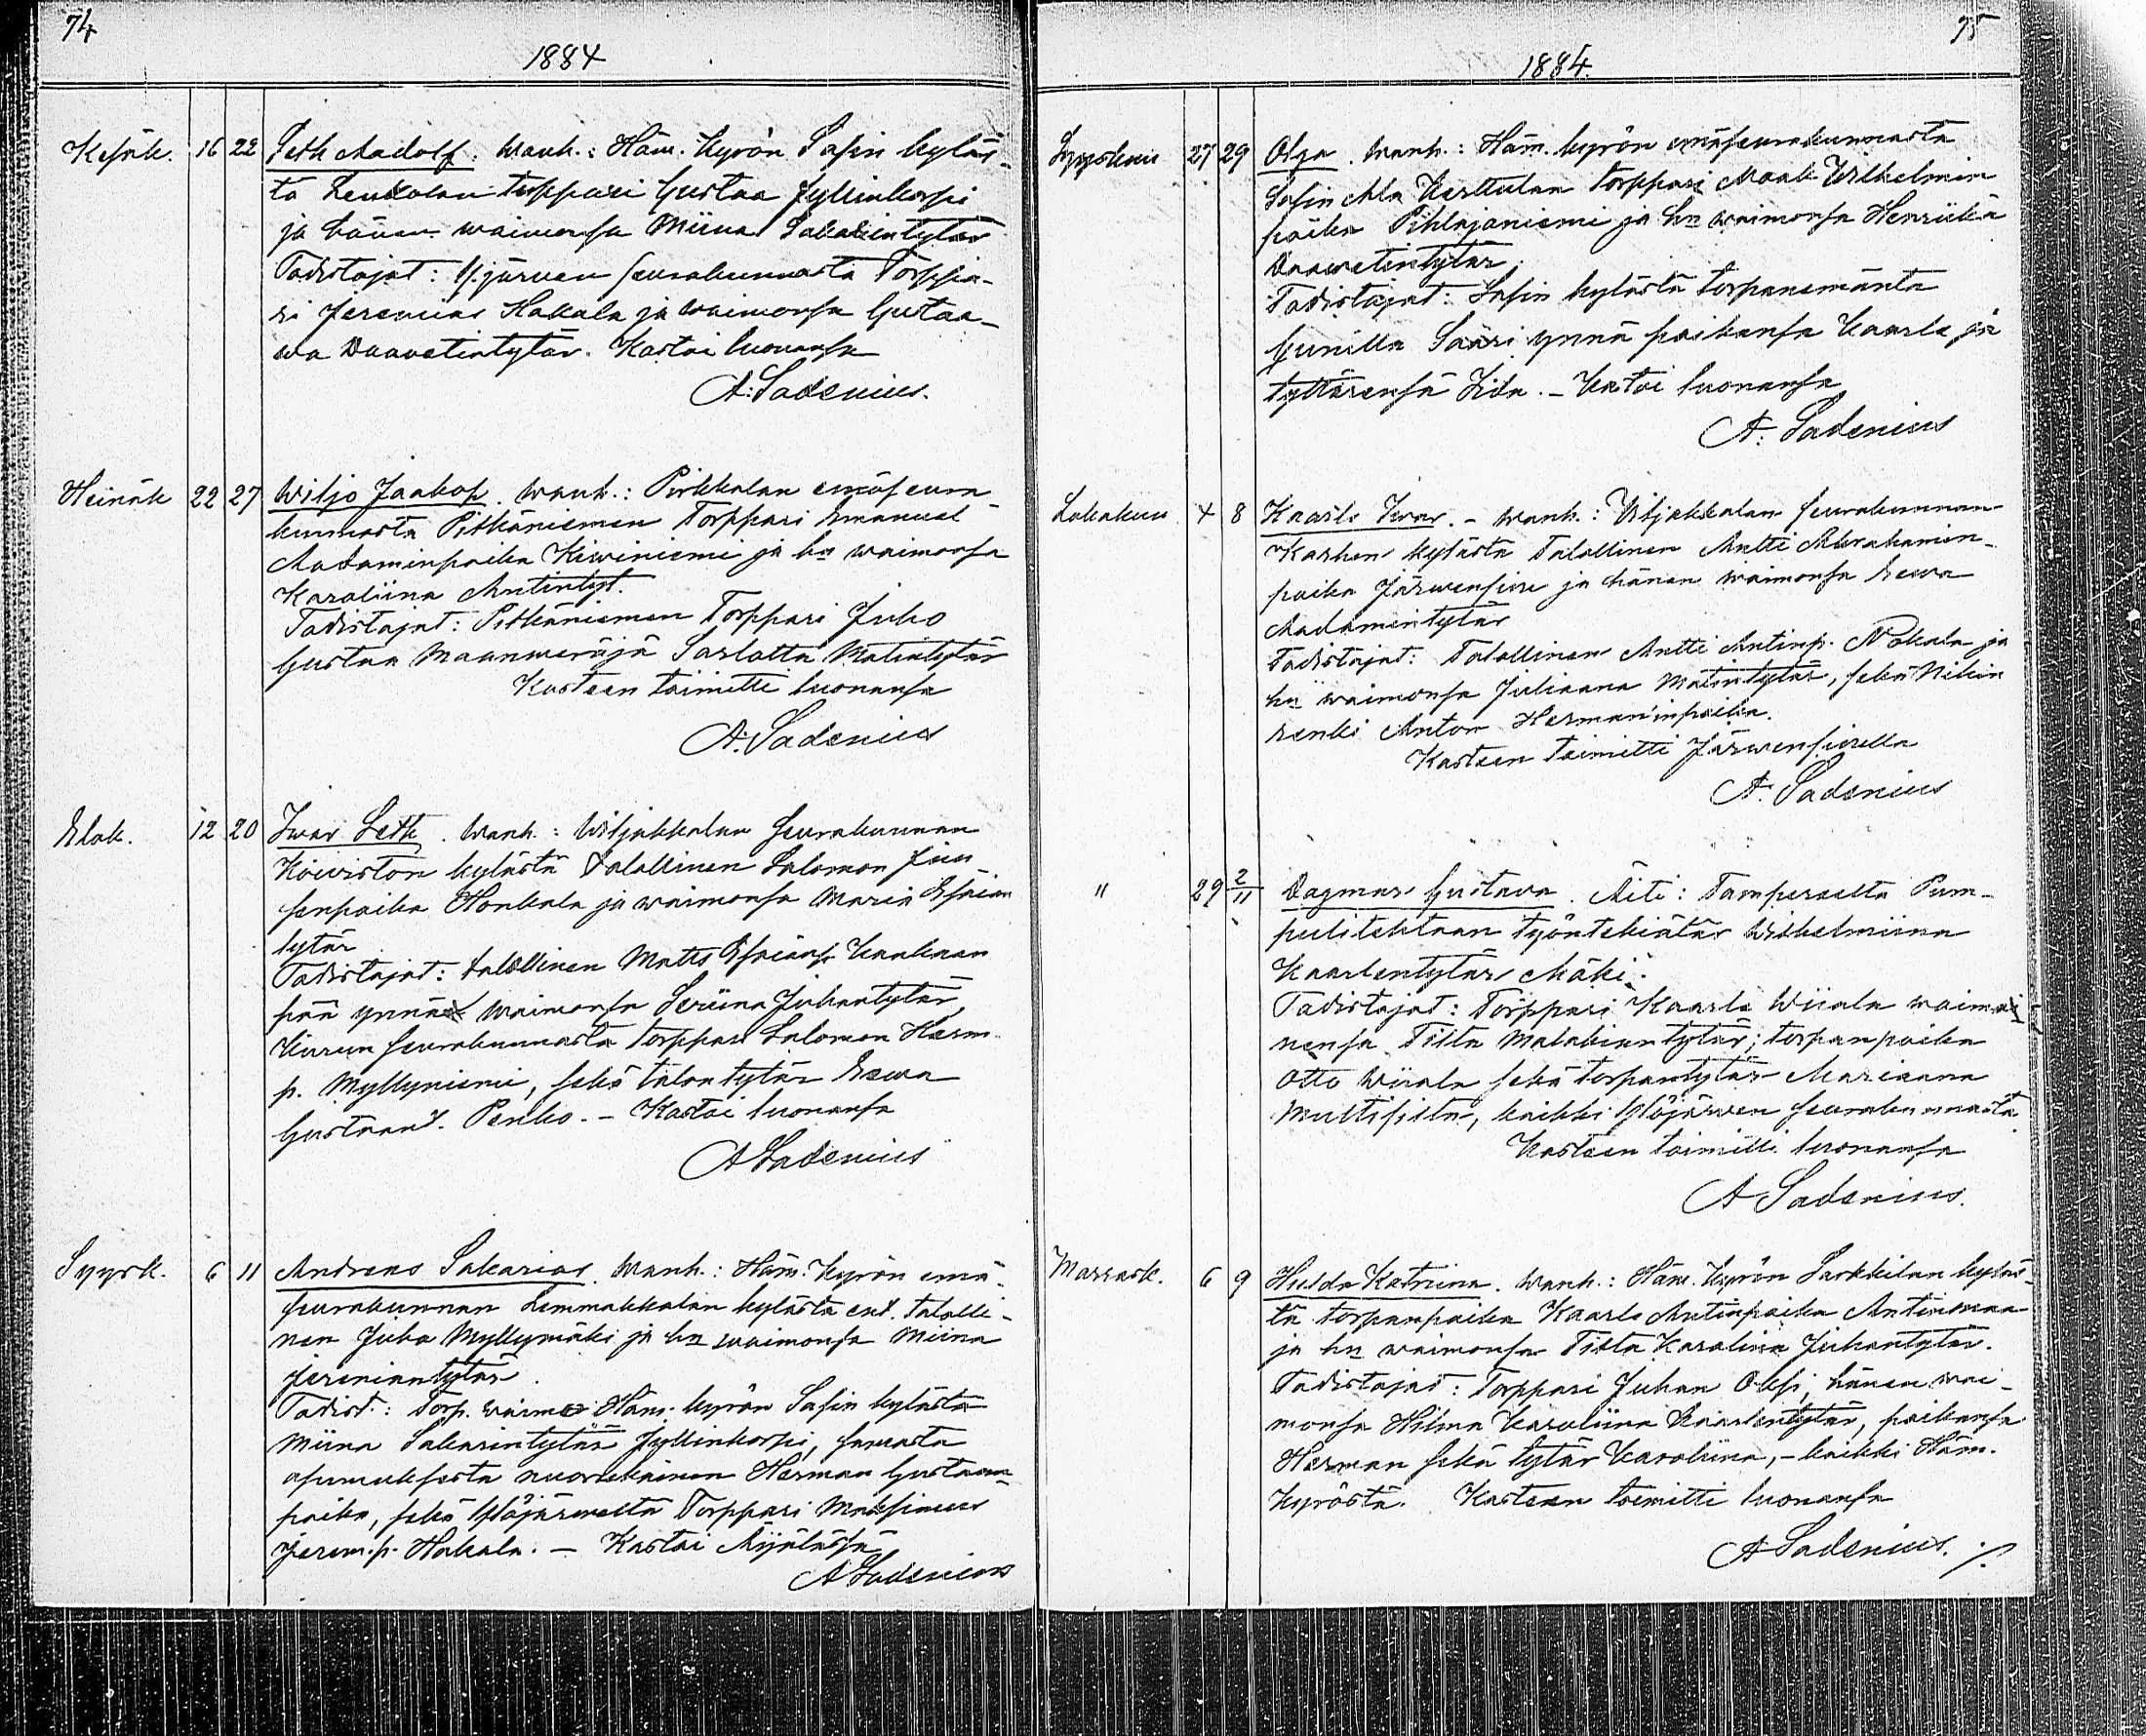 74
1884
Kesäk. 16 22 Seth Aadolf. Wanh.: Häm. Kyrön Sasin kyläs-
tä Leukolan torppari Gustaa Jyllinkorpi
ja hänen waimonsa Miina Sakarintytär
Todistajat: Y.järven seurakunnasta Torppa-
ri Jeremias Hakala ja waimonsa Gustaa-
wa Daavetintytär. Kastoi luonansa
A. Sadenius.
Heinäk 22 27 Wiljo Jaakop. Wanh.: Pirkkalan emäseura-
kunnasta Pitkäniemen Torppari Emanuel
Aadaminpoika Kiwiniemi ja hn waimonsa
Karoliina Antintyt.
Todistajat: Pitkäniemen Torppari Juho
Gustaa Maanmeräjä Sarlotta Matintytär
Kasteen toimitti luonansa
A. Sadenius
Elok. 12 20 Iwar Seth. Wanh.: Wiljakkalan seurakunnan
Koiviston kylästä talollinen Salomon Juu
senpoika Honkala ja waimonsa Maria Esaian
tytär
Todistajat: talollinen Matts Esaianp. Kankaan
pää ynnä waimonsa Seriina Juhantytär,
Kurun seurakunnasta torppari Salomon Herm.
p. Myllyniemi, sekä talontytär Eewa
Gustaant. Penho. - Kastoi luonansa
A Sadenius
Syysk. 6 11 Andreas Sakarias. Wanh.: Häm. Kyrön emä-
seurakunnan Lemmakkalan kylästä ent. talolli-
nen Juha Myllymäki ja hn waimonsa Miina
Jeremiantytär.
Todist.: Torp. waimo Häm. kyrön Sasin kylästä
Miina Sakarintytär Jyllinkorpi, samasta
asumuksesta nuorukainen Herman Gustaan
poika, sekä Ylöjärweltä Torppari Maksimus
Jerem.p. Hakala. - Kastoi Äijälässä
A Sadenius
75
1884.
Syyskuu 27 29 Olga. Wanh.: Häm. kyrön emäseurakunnasta
Sasin Ala Kerttulan torppari Maak Wilhelmin
poika Pihlajaniemi ja hn waimonsa Henriika
Daawetintytär.
Todistajat: Sasin kylästä torpanemäntä
Gunilla Saari ynnä poikansa Kaarle ja
tyttärensä Iida. - Kastoi luonansa
A. Sadenius
Lokakuu 4 8 Kaarlo Iwar. - Wanh.: Viljakkalan seurakunnan
Karhen kylästä Talollinen Antti Abrahamin-
poika Järwensivu ja hänen waimonsa Eewa
Aadamintytär
Todistajat: Talollinen Antti Antinp. Nokala ja
hn waimonsa Juliaana Matintytär, sekä
renki Anton Herman'inpoika.
Kasteen toimitti Järwensivulla
A. Sadenius
" 29 2/11 Dagmar Gustava. Äiti: Tampereelta Pum-
pulitehtaan työntekiätär Wilhelmiina
Kaarlentytär Mäki.
Todistajat: Torppari Kaarle Wiiala waimoi
nensa Tilta Malakiantytär; torpanpoika
Otto Wiiala sekä torpantytär Mariaana
Multisilta, kaikki Ylöjärwen seurakunnasta
Kasteen toimitti luonansa
A Sadenius.
Marrask. 6 9 Hulda Katriina. Wanh.: Häm. Kyrön Sarkkilan kyläs-
tä torpanpoika Kaarle Antinpoika Antinmaa
ja hn waimonsa Tilta Karoliina Juhantytär.
Todistajat: Torppari Juhan Oksi, hänen wai-
monsa Hilma Karoliina Kaarlentytär, poikansa
Herman sekä tytär Karoliina, - kaikki Häm.
Kyröstä. Kasteen toimitti luonansa
A Sadenius.